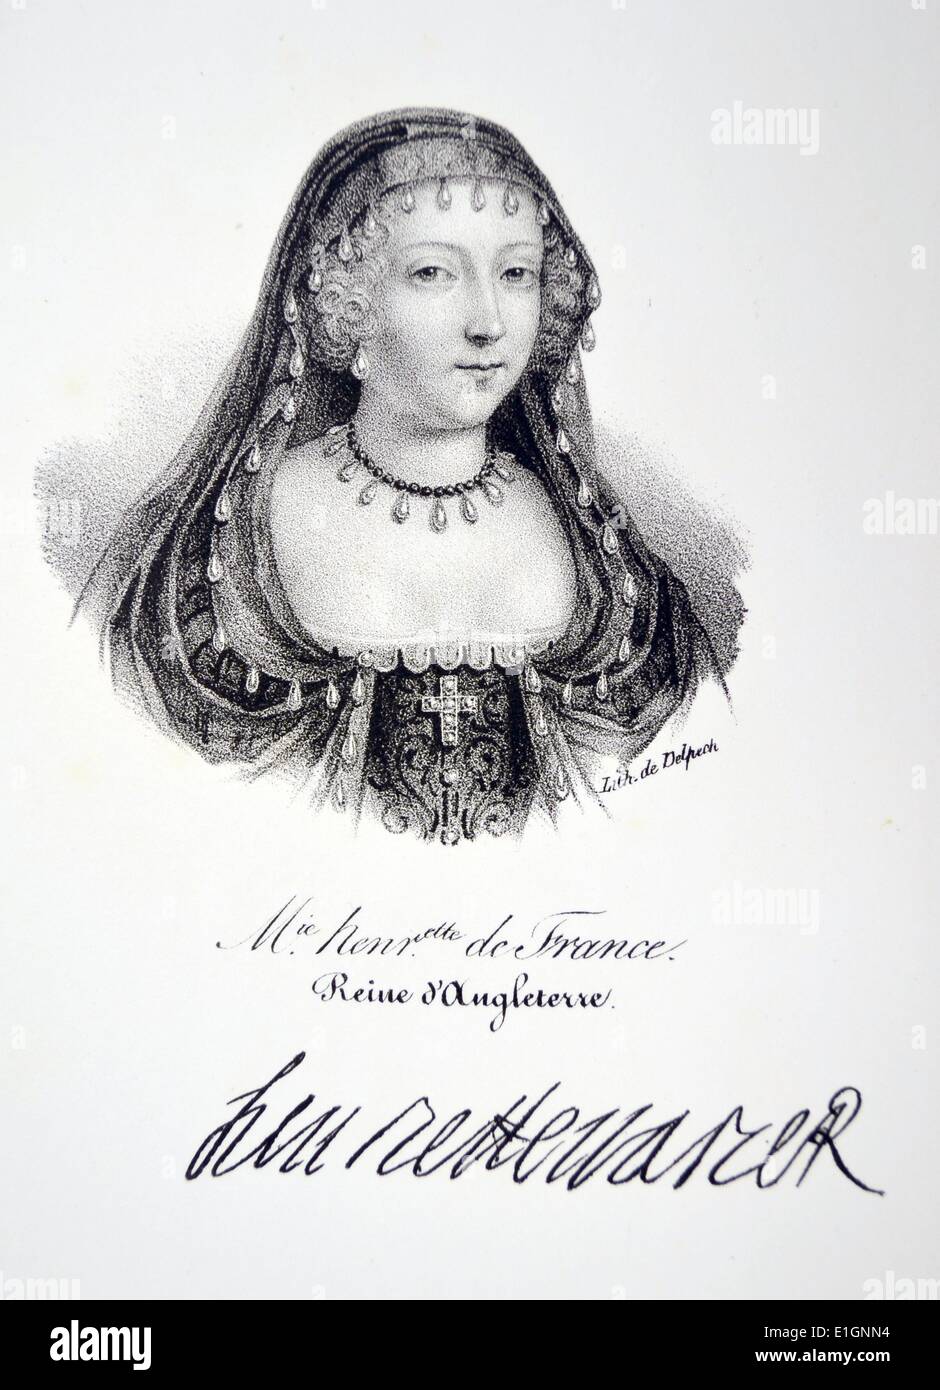 alamy
Lith. de Delpech
M.ie henr.ette de France.
Reine d'Angleterre.
henriette marie R
alamy
Image ID: E1GNN4
www.alamy.com